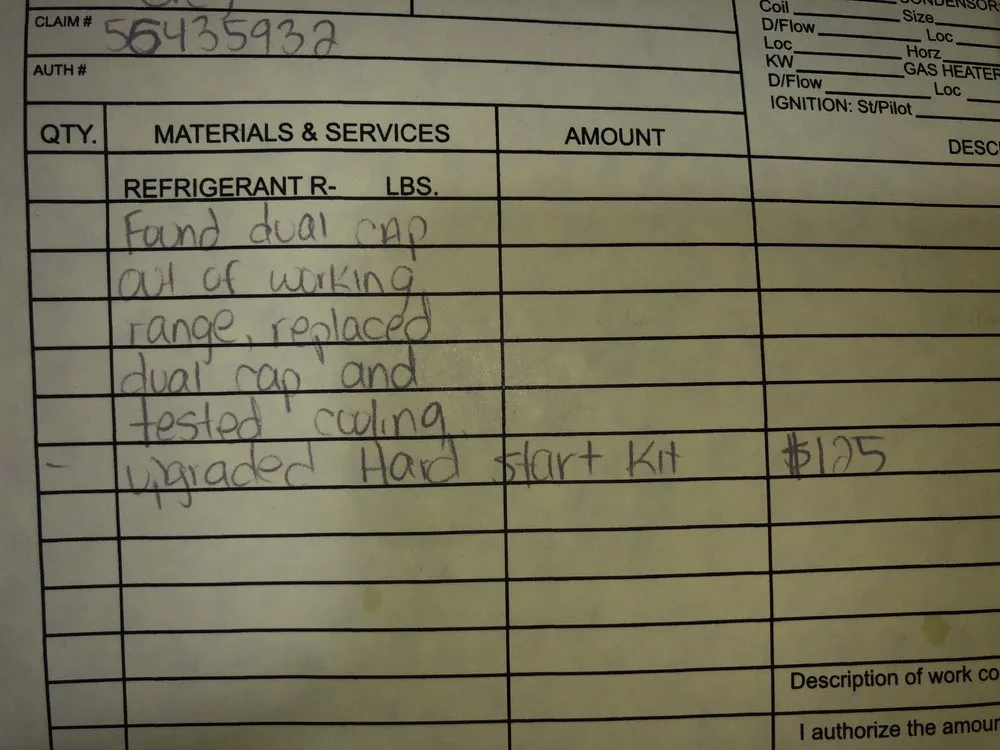 CLAIM # 56435932
AUTH #
Coil Size
D/Flow Loc
Loc Horz
KW GAS HEATER
D/Flow Loc
IGNITION: St/Pilot
QTY. MATERIALS & SERVICES AMOUNT DESC
REFRIGERANT R- LBS.
Found dual cap
out of working
range, replaced
dual cap and
tested cooling.
- upgraded Hard start Kit $125
Description of work co
I authorize the amoun